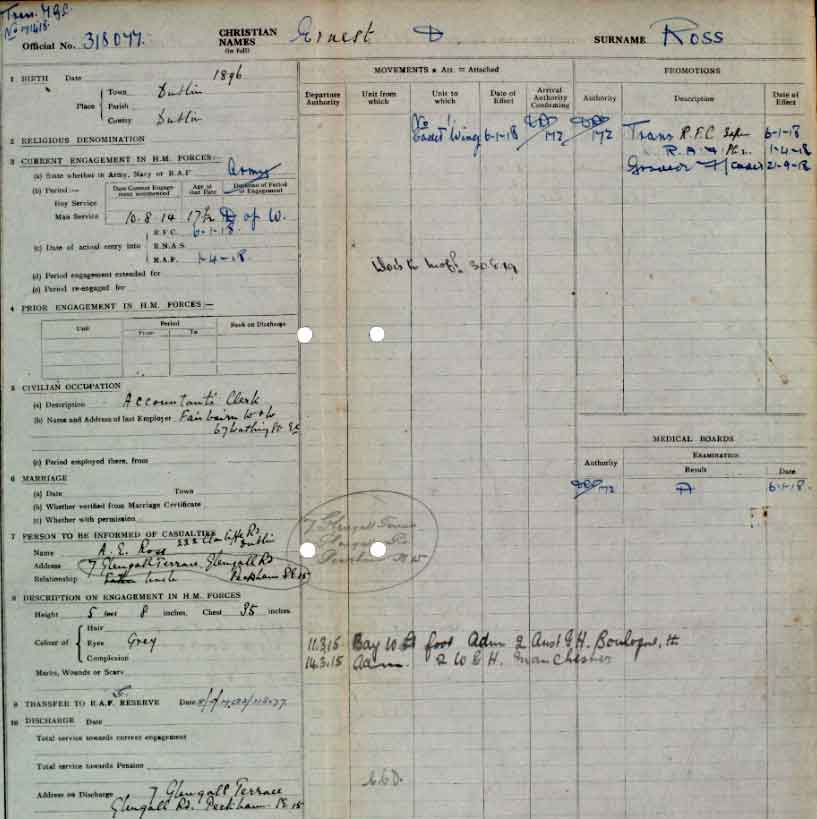 Tran. M.G.C.
No 171418
Official No. 318077. CHRISTIAN NAMES (in full) Ernest D. SURNAME ROSS
1 BIRTH Date 1896
Place Town Dublin
Parish
County Dublin
2 RELIGIOUS DENOMINATION
3 CURRENT ENGAGEMENT IN H.M. FORCES:—
(a) State whether in Army, Navy or R.A.F. Army
(b) Period:— Date Current Engagement commenced Age at that Date Duration of Period of Engagement
Boy Service
Man Service 10.8.14 17½ D of W.
(c) Date of actual entry into R.F.C. 6-1-18.
R.N.A.S.
R.A.F. 1-4-18.
(d) Period engagement extended for
(e) Period re-engaged for
4 PRIOR ENGAGEMENT IN H.M. FORCES:—
Unit Period From To Rank on Discharge
5 CIVILIAN OCCUPATION
(a) Description Accountants Clerk
(b) Name and Address of last Employer Fairbairn W & W
67 Watling St EC
(c) Period employed there, from
6 MARRIAGE
(a) Date Town
(b) Whether verified from Marriage Certificate
(c) Whether with permission
7 PERSON TO BE INFORMED OF CASUALTIES
Name A. E. Ross Rd Dublin
Address 7 Glengall Terrace, Glengall Rd
Relationship Uncle Peckham S.E.15
8 DESCRIPTION ON ENGAGEMENT IN H.M. FORCES
Height 5 feet 8 inches. Chest 35 inches.
Colour of Hair
Eyes Grey
Complexion
Marks, Wounds or Scars
9 TRANSFER TO R.A.F. RESERVE Date
10 DISCHARGE Date
Total service towards current engagement
Total service towards Pension
Address on Discharge 7 Glengall Terrace
Glengall Rd. Peckham 15
MOVEMENTS ★ Att. = Attached
Departure Authority Unit from which Unit to which Date of Effect Arrival Authority Conforming
Cadet Wing 6-1-18 172
30.8.19
7 Glengall Terrace
Glengall Rd.
15
11.3.15 Bay Wd foot Adm 2 Aust G H. Boulogne,
14.3.15 Adm. 2 W G H. Manchester
PROMOTIONS
Authority Description Date of Effect
172 Trans R.F.C. 6-1-18
R.A.F. 1-4-18
Cadet 21-9-18
MEDICAL BOARDS
Authority EXAMINATION Result Date
172 A 6-1-18.